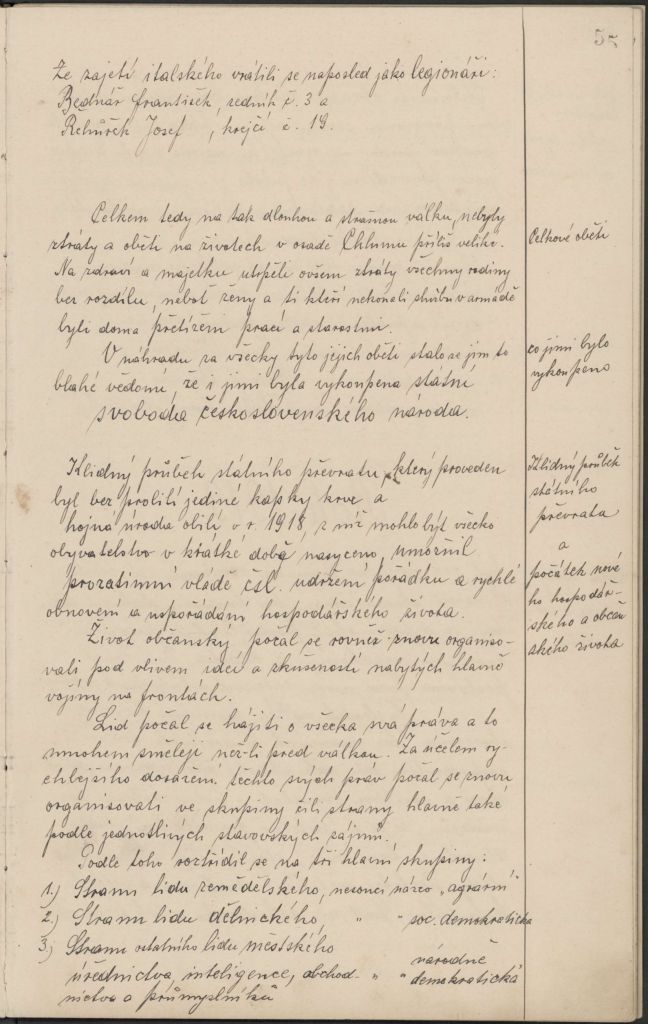 55
Ze zajetí italského vrátili se naposled jako legionáři:
Bednář František, sedník č. 3 a
Řehůřek Josef, krejčí č. 19.
Celkem tedy na tak dlouhou a strašnou válku, nebyly
ztráty a oběti na životech v osadě Chlumu příliš veliké.
Na zdraví a majetku utrpěli ovšem ztráty všechny rodiny
bez rozdílu, neboť ženy a ti kteří nekonali službu v armádě
byli doma přetíženi prací a starostmi.
V náhradu za všecky tyto jejich oběti stalo se jim to
blahé vědomí, že i jimi byla vykoupena státní
svoboda československého národa.
Klidný průběh státního převratu, který proveden
byl bez prolití jediné kapky krve a
hojná úroda obilí v r. 1918, z níž mohlo být všecko
obyvatelstvo v krátké době nasyceno, umožnil
prozatimní vládě čsl. udržení pořádku a rychlé
obnovení a uspořádání hospodářského života.
Život občanský počal se rovněž znovu organiso-
vati pod vlivem ideí a zkušeností nabytých hlavně
vojíny na frontách.
Lid počal se hájiti o všecka svá práva a to
mnohem směleji než-li před válkou. Za účelem ry-
chlejšího dosažení těchto svých práv počal se znovu
organisovati ve skupiny čili strany hlavně také
podle jednotlivých stavovských zájmů.
Podle toho roztřídil se na tři hlavní skupiny:
1.) Stranu lidu zemědělského, nesoucí název „agrární"
2.) Stranu lidu dělnického, " " soc. demokratická
3.) Stranu ostatního lidu městského
úřednictva, inteligence, obchod- " " národně demokratická
nictva a průmyslníků
Celkové oběti
co jimi bylo
vykoupeno
Klidný průběh
státního
převratu
a
počátek nové
ho hospodář-
ského a občan
ského života